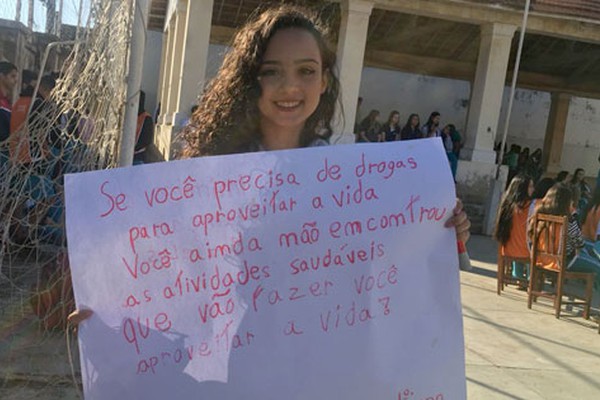 Se você precisa de drogas
para aproveitar a vida
Você ainda não encontrou
as atividades saudáveis
que vão fazer você
aproveitar a vida?